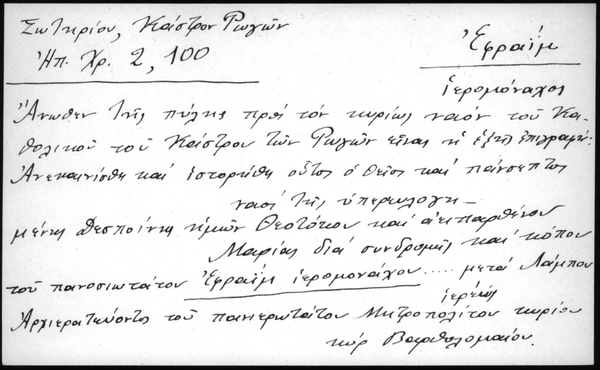 Σωτηρίου, Κάστρον Ρωγῶν
Ἠπ. Χρ. 2, 100
Ἐφραίμ
ἱερομόναχος
Ἄνωθεν τῆς πύλης πρὸς τὸν κυρίως ναὸν τοῦ Κα-
θολικοῦ τοῦ Κάστρου τῶν Ρωγῶν εἶναι ἡ ἑξῆς ἐπιγραφή:
Ἀνεκαινίσθη καὶ ἱστορήθη οὗτος ὁ θεῖος καὶ πάνσεπτος
ναὸς τῆς ὑπερευλογη-
μένης Δεσποίνης ἡμῶν Θεοτόκου καὶ ἀειπαρθένου
Μαρίας διὰ συνδρομῆς καὶ κόπου
τοῦ πανοσιωτάτου Ἐφραίμ ἱερομονάχου ..... μετὰ Λάμπου
ἱερέως
Ἀρχιερατεύοντος τοῦ πανιερωτάτου Μητροπολίτου κυρίου
κύρ Βαρθολομαίου.